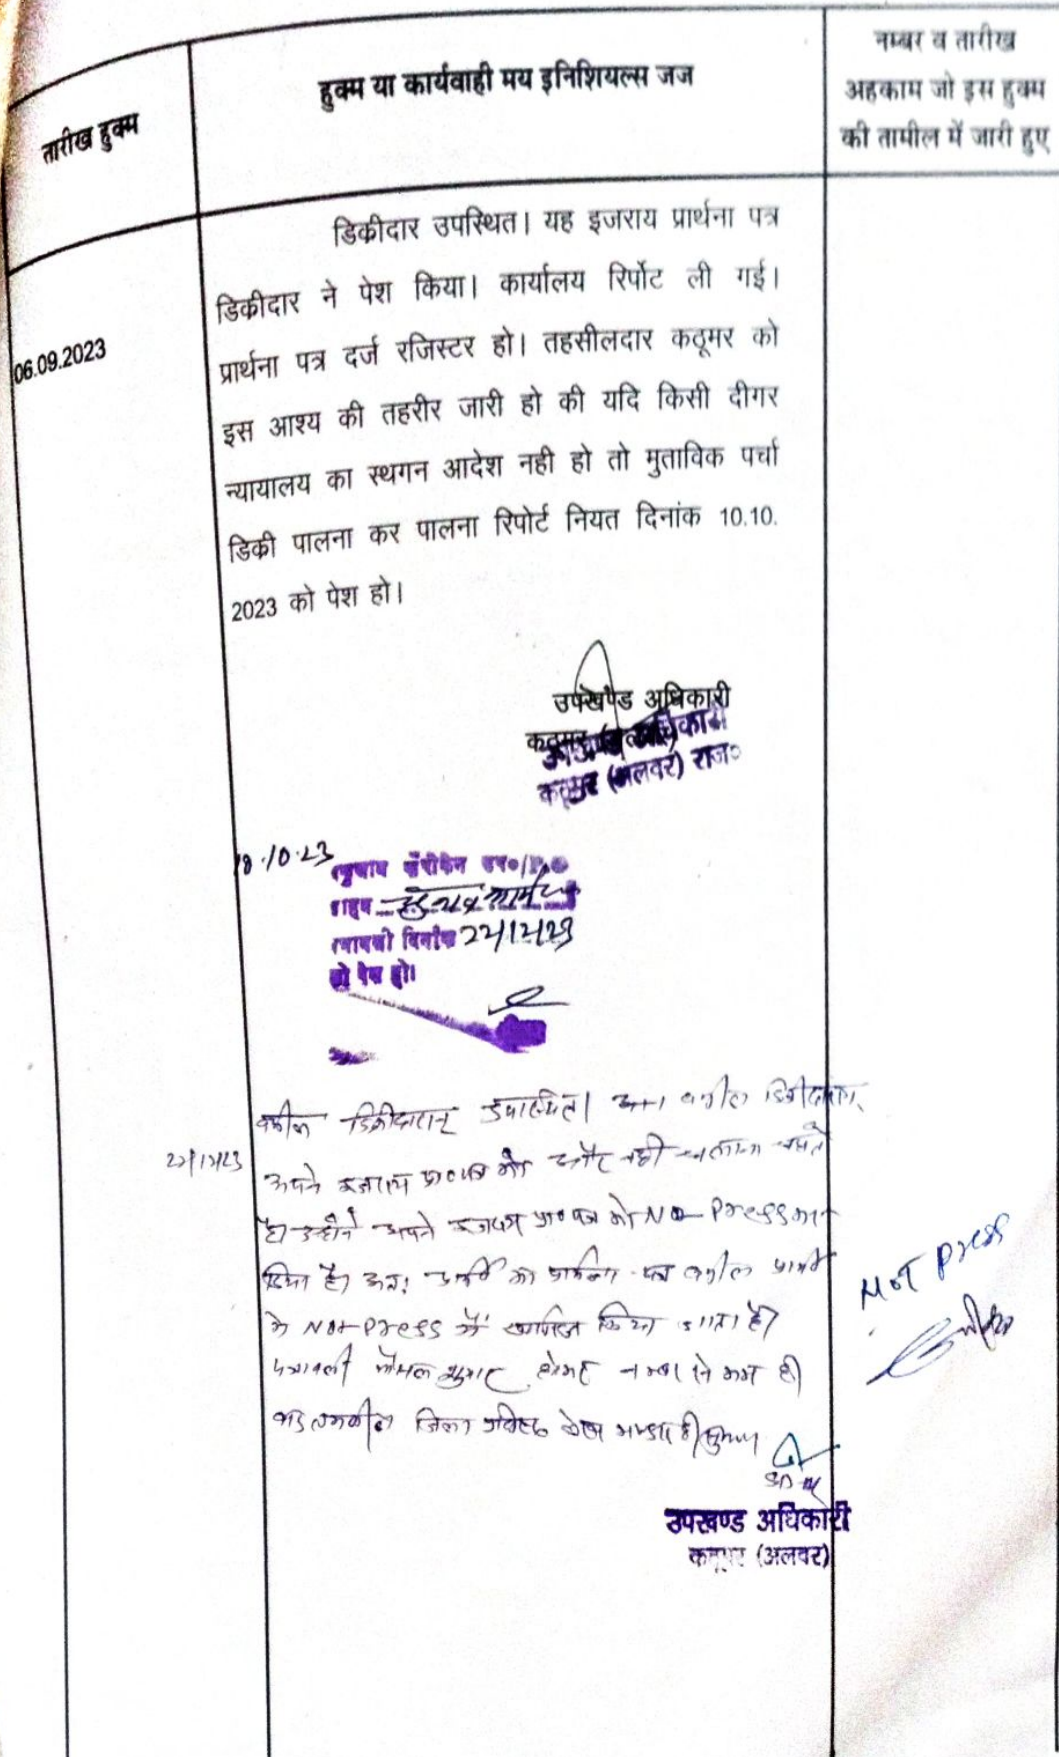 तारीख हुक्म
हुक्म या कार्यवाही मय इनिशियल्स जज
नम्बर व तारीख
अहकाम जो इस हुक्म
की तामील में जारी हुए
06.09.2023
डिकीदार उपस्थित। यह इजराय प्रार्थना पत्र
डिकीदार ने पेश किया। कार्यालय रिर्पोट ली गई।
प्रार्थना पत्र दर्ज रजिस्टर हो। तहसीलदार कठूमर को
इस आश्य की तहरीर जारी हो की यदि किसी दीगर
न्यायालय का स्थगन आदेश नही हो तो मुताविक पर्चा
डिकी पालना कर पालना रिपोर्ट नियत दिनांक 10.10.
2023 को पेश हो।
उपखण्ड अधिकारी
कठूमर (अलवर) राज०
10.10.23
दिनांक 22/12/23
को पेश हो।
22/12/23
वकील डिक्रीदारान् उपस्थित। वकील डिक्रीदारान्
अपने इजराय प्रा०पत्र को और नहीं चलाना चाहते
है। उन्होंने अपने इजराय प्रा०पत्र को No Press कर
दिया है। अतः प्रार्थना पत्र वकील प्रार्थी
के Not Press में खारिज किया जाता है।
पत्रावली फैसल शुमार होकर नम्बर से कम हो
Not Press
SDM
उपखण्ड अधिकारी
कठूमर (अलवर)